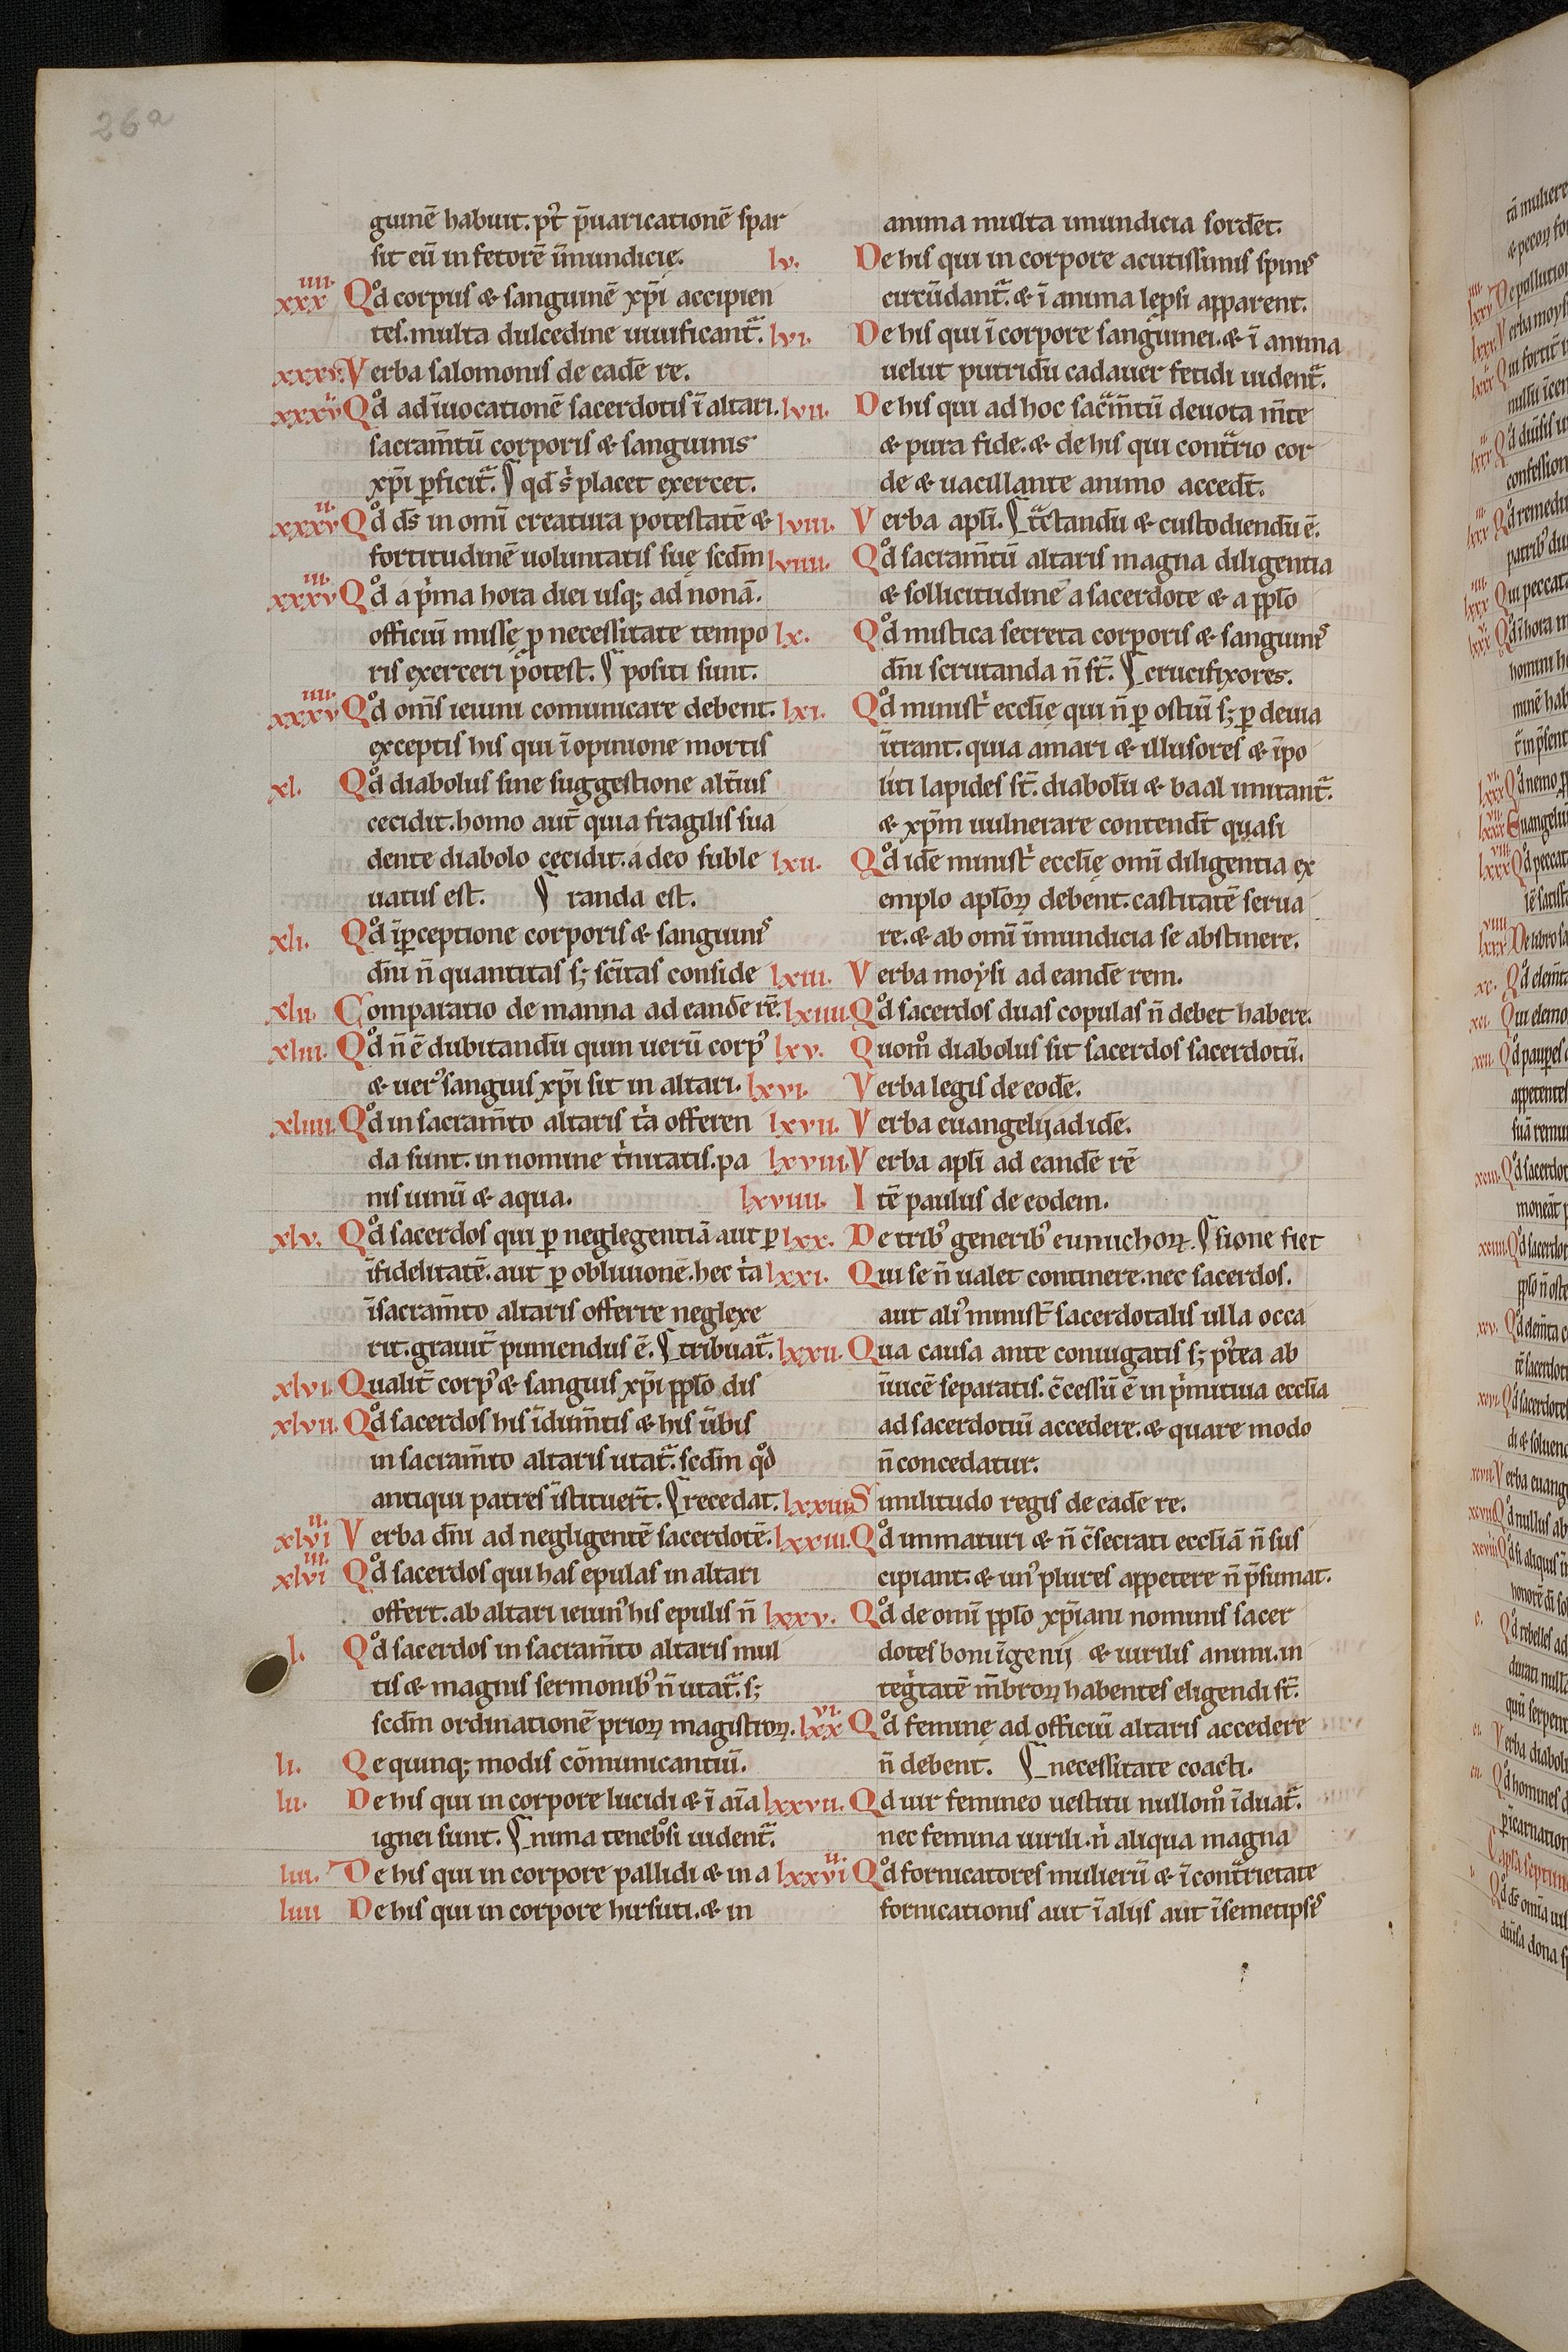 26a
guinē habuit. pt̄ p̄uaricationē spar
sit eū in fetorē īmundicię.
xxxiiii. Qd̊ corpus & sanguinē xp̄i accipien
tes. multa dulcedine uiuificant̄.
xxxv. Verba salomonis de eadē re.
xxxvi. Qd̊ ad īuocationē sacerdotis ī altari.
sacram̄tū corporis & sanguinis
xp̄i ꝑficit̄. ¶ qd̄ s̉ placet exercet.
xxxvii. Qd̊ ds̄ in omī creatura potestatē &
fortitudinē uoluntatis suę scdm̄
xxxviii. Qd̊ a pͥma hora diei usq; ad nonā.
officiū missę ꝑ necessitate tempo
ris exerceri potest. ¶ positi sunt.
xxxviiii. Qd̊ om̄s ieiuni comunicare debent.
exceptis his qui ī opinione mortis
xl. Qd̊ diabolus sine suggestione alt̄ius
cecidit. homo aut̄ quia fragilis sua
dente diabolo cecidit. a deo suble
uatus est. ¶ randa est.
xli. Qd̊ īꝑceptione corporis & sanguinis
dn̄i n̄ quantitas s; sc̄itas conside
xlii. Comparatio de manna ad eandē rē.
xliii. Qd̊ n̄ ē dubitandū quin uerū corpꝰ
& uerꝰ sanguis xp̄i sit in altari.
xliiii. Qd̊ in sacram̄to altaris tͥa offeren
da sunt. in nomine tͥnitatis. pa
nis uinū & aqua.
xlv. Qd̊ sacerdos qui ꝑ neglegentiā aut ꝑ
īfidelitatē. aut ꝑ obliuionē. hec tͥa
ī sacram̄to altaris offerre neglexe
rit. grauit̄ puniendus ē. ¶ tribuat̄.
xlvi. Qualit̄ corpꝰ & sanguis xp̄i pplo dis
xlvii. Qd̊ sacerdos his īdum̄tis & his ūbis
in sacram̄to altaris utat̄. scdm̄ qd̊
antiqui patres īstituer̄t. ¶ recedat.
xlviii. Verba dn̄i ad negligentē sacerdotē.
xlviiii. Qd̊ sacerdos qui has epulas in altari
offert. ab altari ieiunꝰ his epulis n̄
l. Qd̊ sacerdos in sacram̄to altaris mul
tis & magnis sermonibꝰ n̄ utat̄. s;
scdm̄ ordinationē prioꝝ magistroꝝ.
li. Qe quinq; modis cōmunicantiū.
lii. De his qui in corpore lucidi & ī aīa
ignei sunt. ¶ nima tenebrosi uident̄.
liii. De his qui in corpore pallidi & in a
liiii De his qui in corpore hirsuti. & in
anima multa imundicia sordēt.
lv. De his qui in corpore acutissimis spinis
circūdant̄. & ī anima leprosi apparent.
lvi. De his qui ī corpore sanguinei. & ī anima
uelut putridū cadauer fetidi uident̄.
lvii. De his qui ad hoc sacͣm̄tū deuota m̄te
& pura fide. & de his qui contͣrio cor
de & uacillante animo accedt̄.
lviii. Verba apl̄i. ¶ tͣctandū & custodiendū ē.
lviiii. Qd̊ sacram̄tū altaris magna diligentia
& sollicitudine a sacerdote & a pplo
lx. Qd̊ mistica secreta corporis & sanguinis
dn̄i scrutanda n̄ st̄. ¶ crucifixores.
lxi. Qd̊ ministͥ ecclīę qui n̄ ꝑ ostiū s; ꝑ deuia
ītrant. quia amari & illusores & īpo
liti lapides st̄. diabolū & baal imitant̄.
& xpm̄ uulnerare contendt̄ quasi
lxii. Qd̊ idē ministͥ ecclīę omī diligentia ex
emplo apl̄oꝝ debent. castitatē serua
re. & ab omī īmundicia se abstinere.
lxiii. Verba moysi ad eandē rem.
lxiiii. Qd̊ sacerdos duas copulas n̄ debet habere.
lxv. Quom̊ diabolus sit sacerdos sacerdotū.
lxvi. Verba legis de eodē.
lxvii. Verba euangelij ad idē.
lxviii. Verba apl̄i ad eandē rē
lxviiii. Itē paulus de eodem.
lxx. De tribꝰ generibꝰ eunuchoꝝ. ¶ sione fiet
lxxi. Qui se n̄ ualet continere. nec sacerdos.
aut aliꝰ minist̄ sacerdotalis ulla occa
lxxii. Qua causa ante coniugatis s; pt̄ea ab
īuicē separatis. c̄cessū ē in pͥmitiua ecclīa
ad sacerdotiū accedere. & quare modo
n̄ concedatur.
lxxiii. Similitudo regis de eadē re.
lxxiiii. Qd̊ immaturi & n̄ c̄secrati ecclīā n̄ sus
cipiant. & unꝰ plures appetere n̄ p̄sumat.
lxxv. Qd̊ de omī pplo xp̄iani nominis sacer
dotes boni īgenij & uirilis animi. in
tegͥtatē m̄broꝝ habentes eligendi st̄.
lxxvi. Qd̊ feminę ad officiū altaris accedere
n̄ debent. ¶ necessitate coacti.
lxxvii. Qd uir femineo uestitu nullom̊ īduat̄.
nec femina uirili. nͥ aliqua magna
lxxviii. Qd̊ fornicatores mulierū & ī contͣrietate
fornicationis aut ī alijs aut ī semetipsis